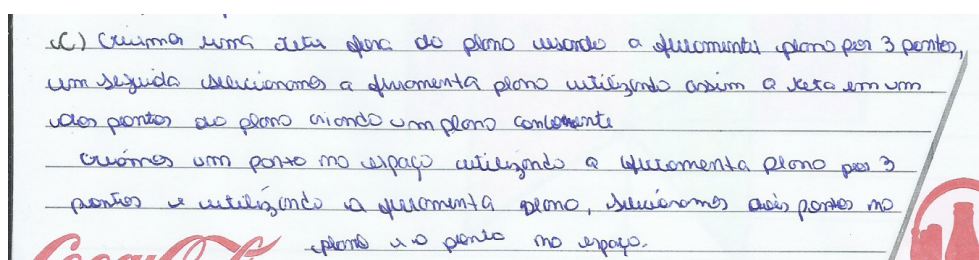 C) Criamos uma reta fora do plano usando a ferramenta plano por 3 pontos,
em seguida selecionamos a ferramenta plano utilizando assim a reta em um
dos pontos do plano criando um plano concorrente
Criamos um ponto no espaço utilizando a ferramenta plano por 3
pontos e utilizando a ferramenta plano, selecionamos dois pontos no
plano e o ponto no espaço.
Coca-Co